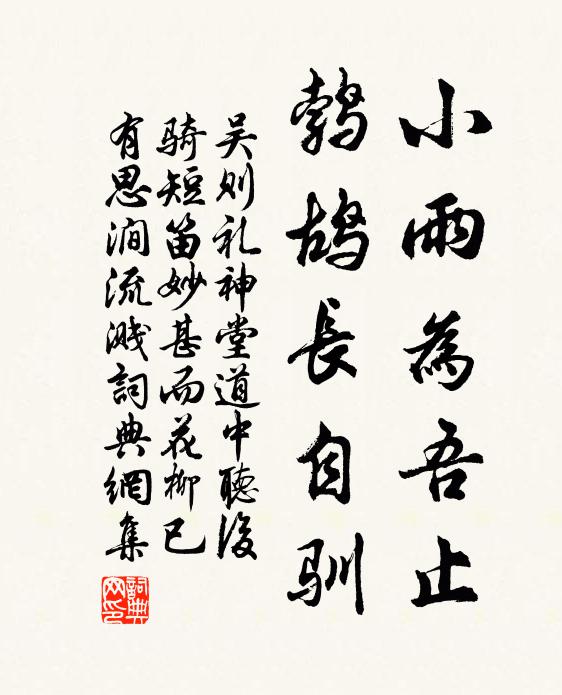 小雨為吾止
鹁鸪長自驯
吴则礼神堂道中聽後
骑短笛妙甚而花柳已
有思涧流溅詞典網集
詞典
网印